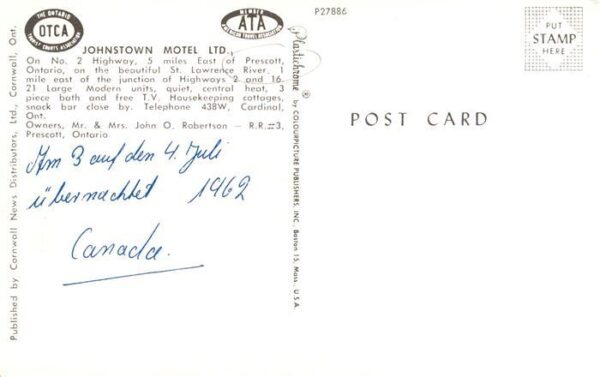 THE ONTARIO
OTCA
TOURIST COURTS ASSOCIATION
MEMBER
ATA
P27886
PUT
STAMP
HERE
JOHNSTOWN MOTEL LTD.,
On No. 2 Highway, 5 miles East of Prescott,
Ontario, on the beautiful St. Lawrence River, 1
mile east of the junction of Highways 2 and 16.
21 Large Modern units, quiet, central heat, 3
piece bath and free T.V. Housekeeping cottages,
snack bar close by. Telephone 438W, Cardinal,
Ont.
Owners, Mr. & Mrs. John O. Robertson — R.R.#3,
Prescott, Ontario
Am 3 auf den 4. Juli
übernachtet 1962
Canada.
Published by Cornwall News Distributors, Ltd., Cornwall, Ont.
Plastichrome ® by COLOURPICTURE PUBLISHERS, INC. Boston 15, Mass. U.S.A.
POST CARD